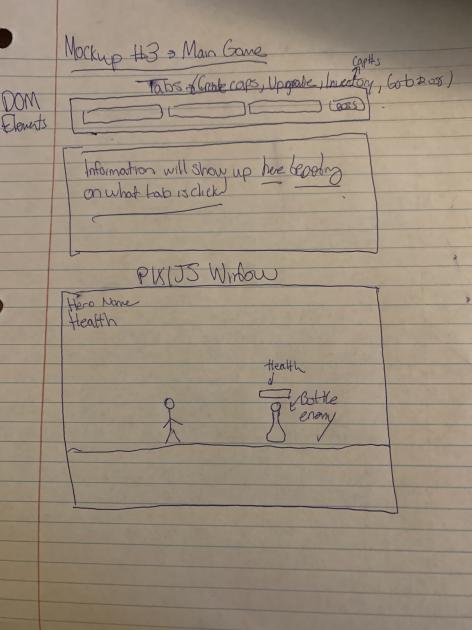 Mockup #3 → Main Game
Capths
Tabs (Create caps, Upgrade, Inventory, Go to Boss)
DOM
Elements
Boss
Information will show up here depending
on what tab is click
PIXIJS Window
Hero Name
Health
Health
Bottle
enemy